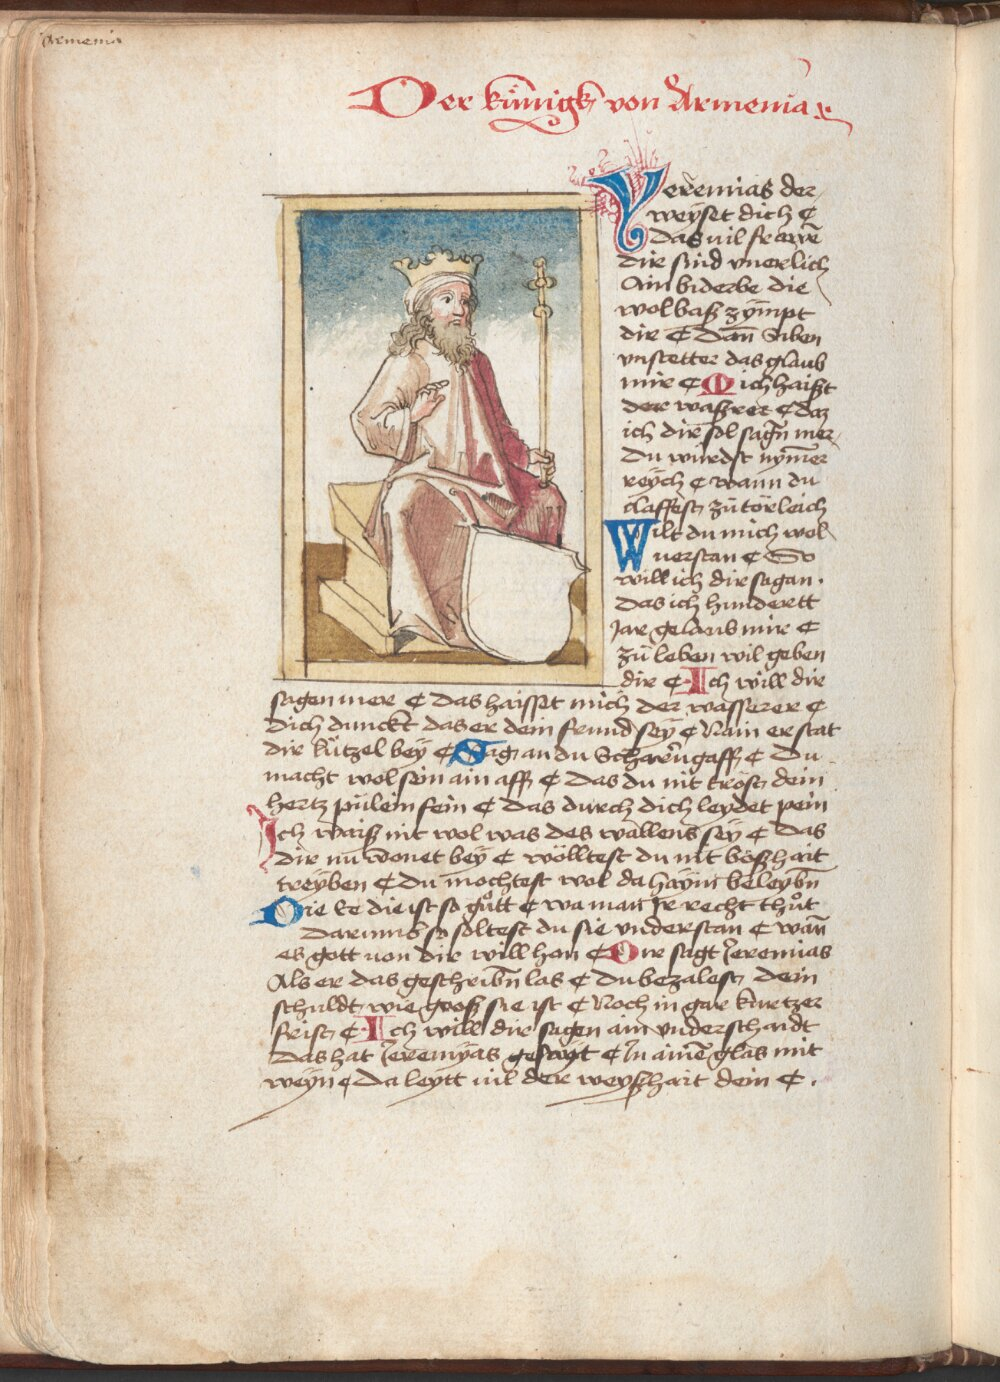 Armenia
Der künigk von Armenia
Yeremias der
weyset dich ¢
Das uil frawē
dir sind vnerlich
Ain biderbe die
wol baß zympt
die ¢ Dañ siben
vnstetter das glaub
mir ¢ Mich haißt
der waßrer ¢ daz
ich dir sol sagn mer
Du würdst nymer
reych ¢ wann du
claffest zu törleich
Wilt du mich wol
uerstan ¢ So
will ich dir sagan
Das ich hundertt
Jar gelaub mir ¢
zu leben wil geben
dir ¢ Ich will dir
sagen mer ¢ das haisset mich der wasserer ¢
Dich dunckt das er dein frund sey ¢ Nain er stat
dir lützel bey ¢ Sag an du ¢ Du
macht wol sein ain aff ¢ Das du nit trost dein
hertz fein ¢ Das durch dich leydet pein
Ich waiß nit wol was des wallens sey ¢ Das
dir nu wonet bey ¢ wölltest du nit bößhait
treyben ¢ Du mochtest wol da haym beleybn
Die Ee die ist so gůtt ¢ wa man Jr recht thůt
Darumb so soltest du sie vnderstan ¢ wañ
es gott uon dir will hon ¢ Dir sagt Jeremias
Als er das geschribn las ¢ du bezalest dein
schuldt wie groß sie ist ¢ Noch in gar kurtzer
frist ¢ Ich will dir sagen ain vnderschaidt
Das hat Jeremyas gesagt ¢ Jn ainē glas mit
weyn ¢ Da leytt uil der weyßhait dein ¢ .